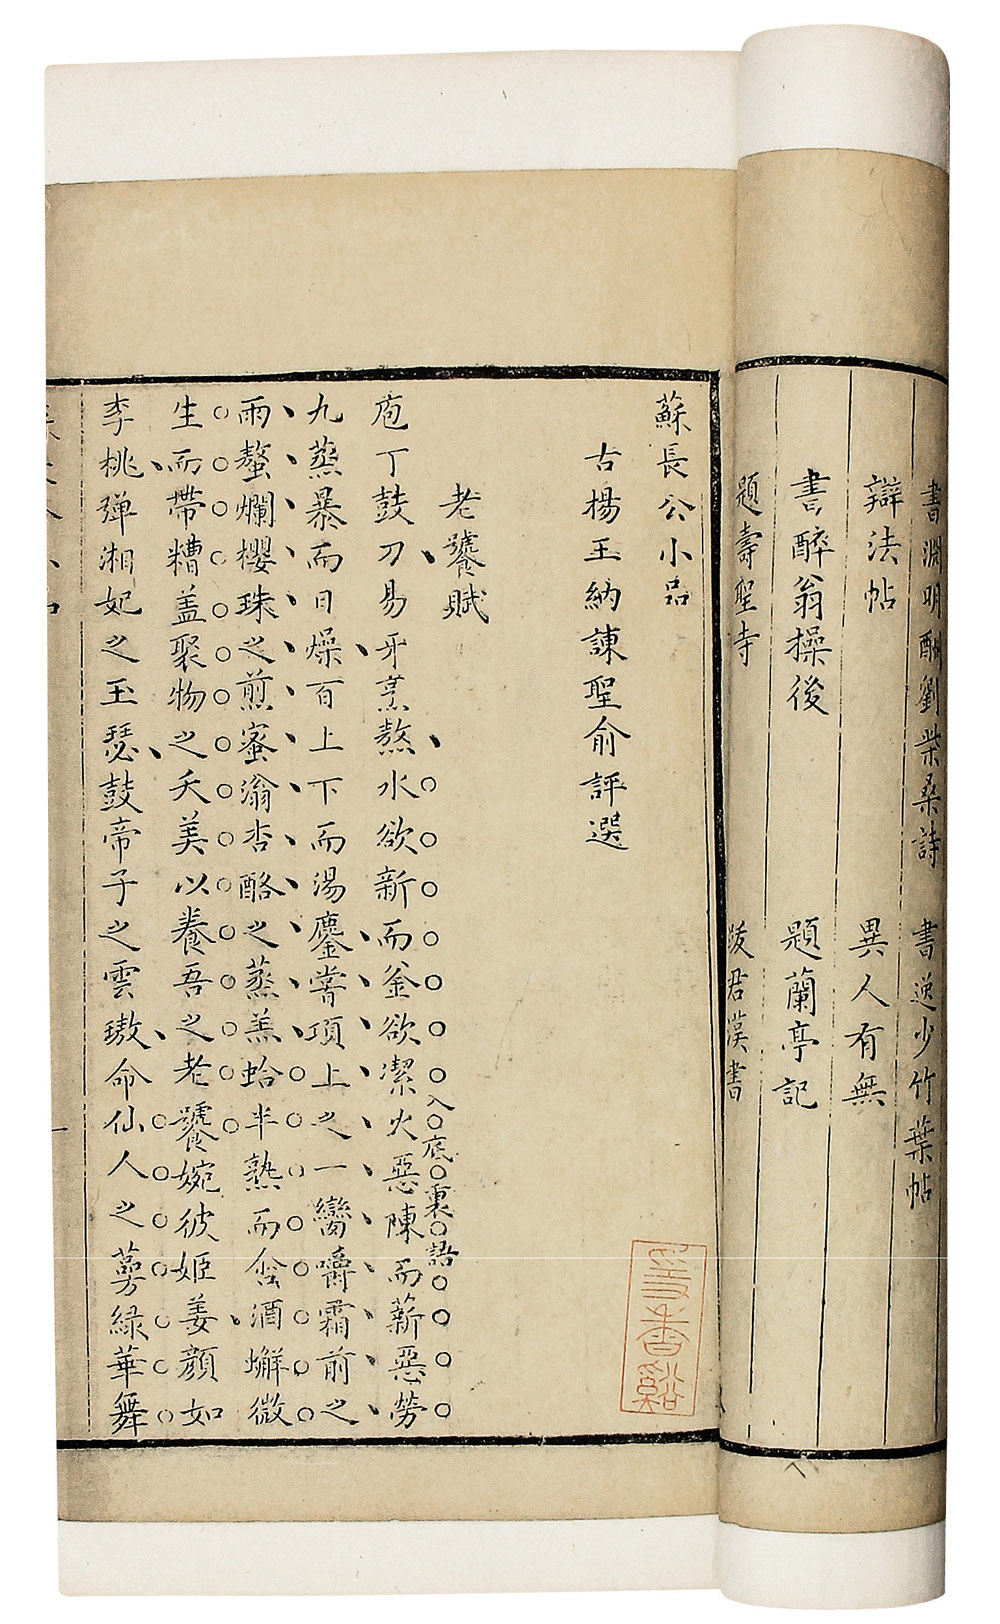 書淵明酬劉柴桑詩　書逸少竹葉帖
辯法帖　異人有無
書醉翁操後　題蘭亭記
題壽聖寺　跋君漢書
蘇長公小品
古楊王納諫聖俞評選
老饕賦
庖丁鼓刀易牙烹熬水欲新而釜欲潔火惡陳而薪惡勞
入底裏語
九蒸暴而日燥百上下而湯鏖嘗項上之一臠嚼霜前之
兩螯爛櫻珠之煎蜜滃杏酪之蒸羔蛤半熟而含酒蠏微
生而帶糟盖聚物之夭美以養吾之老饕婉彼姬姜顔如
李桃彈湘妃之玉瑟鼓帝子之雲璈命仙人之萼緑華舞
一